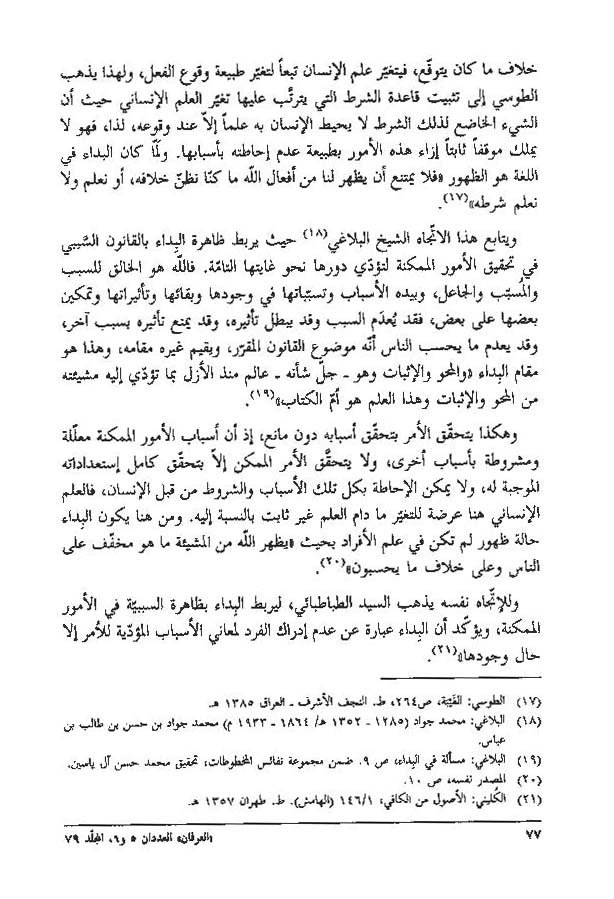 خلاف ما كان يتوقّع، فيتغيّر علم الإنسان تبعاً لتغيّر طبيعة وقوع الفعل، ولهذا يذهب
الطوسي إلى تثبيت قاعدة الشرط التي يترتَّب عليها تغيّر العلم الإنساني حيث أن
الشيء الخاضع لذلك الشرط لا يحيط الإنسان به علماً إلاّ عند وقوعه، لذا، فهو لا
يملك موقفاً ثابتاً إزاء هذه الأمور بطبيعة عدم إحاطته بأسبابها. ولمّا كان البداء في
اللغة هو الظهور «فلا يمتنع أن يظهر لنا من أفعال اللّه ما كنّا نظنّ خلافه، أو نعلم ولا
نعلم شرطه»(١٧).
ويتابع هذا الاتّجاه الشيخ البلاغي(١٨) حيث يربط ظاهرة البِداء بالقانون السَّببي
في تحقيق الأمور الممكنة لتؤدّي دورها نحو غايتها التامّة. فاللّه هو الخالق للسبب
والمُسبّب والجاعل، وبيده الأسباب وتسبّباتها في وجودها وبقائها وتأثيراتها وتمكين
بعضها على بعض، فقد يُعدَم السبب وقد يبطل تأثيره، وقد يمنع تأثيره بسبب آخر،
وقد يعدم ما يحسب الناس أنّه موضوع القانون المقرّر، ويقيم غيره مقامه، وهذا هو
مقام البِداء «والمحو والإثبات وهو ـ جلّ شأنه ـ عالم منذ الأزل بما تؤدّي إليه مشيئته
من المحو والإثبات وهذا العلم هو أُمّ الكتاب»(١٩).
وهكذا يتحقّق الأمر بتحقّق أسبابه دون مانع، إذ أن أسباب الأمور الممكنة معلّلة
ومشروطة بأسباب أخرى، ولا يتحقَّق الأمر الممكن إلاّ بتحقّق كامل إستعداداته
الموجبة له، ولا يمكن الإحاطة بكل تلك الأسباب والشروط من قبل الإنسان، فالعلم
الإنساني هنا عرضة للتغيّر ما دام العلم غير ثابت بالنسبة إليه. ومن هنا يكون البِداء
حالة ظهور لم تكن في علم الأفراد بحيث «يظهر اللّه من المشيئة ما هو مخفّف على
الناس وعلى خلاف ما يحسبون»(٢٠).
وللإتّجاه نفسه يذهب السيد الطباطبائي، ليربط البِداء بظاهرة السببيّة في الأمور
الممكنة، ويؤكّد أن البِداء عبارة عن عدم إدراك الفرد لمعاني الأسباب المؤدّية للأمر إلا
حال وجودها»(٢١).
(١٧) الطوسي: الغَيْبَة، ص٢٦٤، ط. النجف الأشرف ـ العراق ١٣٨٥ هـ.
(١٨) البلاغي: محمد جواد (١٢٨٥ - ١٣٥٢ هـ/ ١٨٦٤ - ١٩٣٣ م) محمد جواد بن حسن بن طالب بن
عباس.
(١٩) البلاغي: مسألة في البِداء، ص ٩. ضمن مجموعة نفائس المخطوطات، تحقيق محمد حسن آل ياسين.
(٢٠) المصدر نفسه، ص ١٠.
(٢١) الكُليني: الأصول من الكافي، ١٤٦/١ (الهامش). ط. طهران ١٣٥٧ هـ.
٧٧ «العرفان» العددان ٥ و٦، المجلّد ٧٩